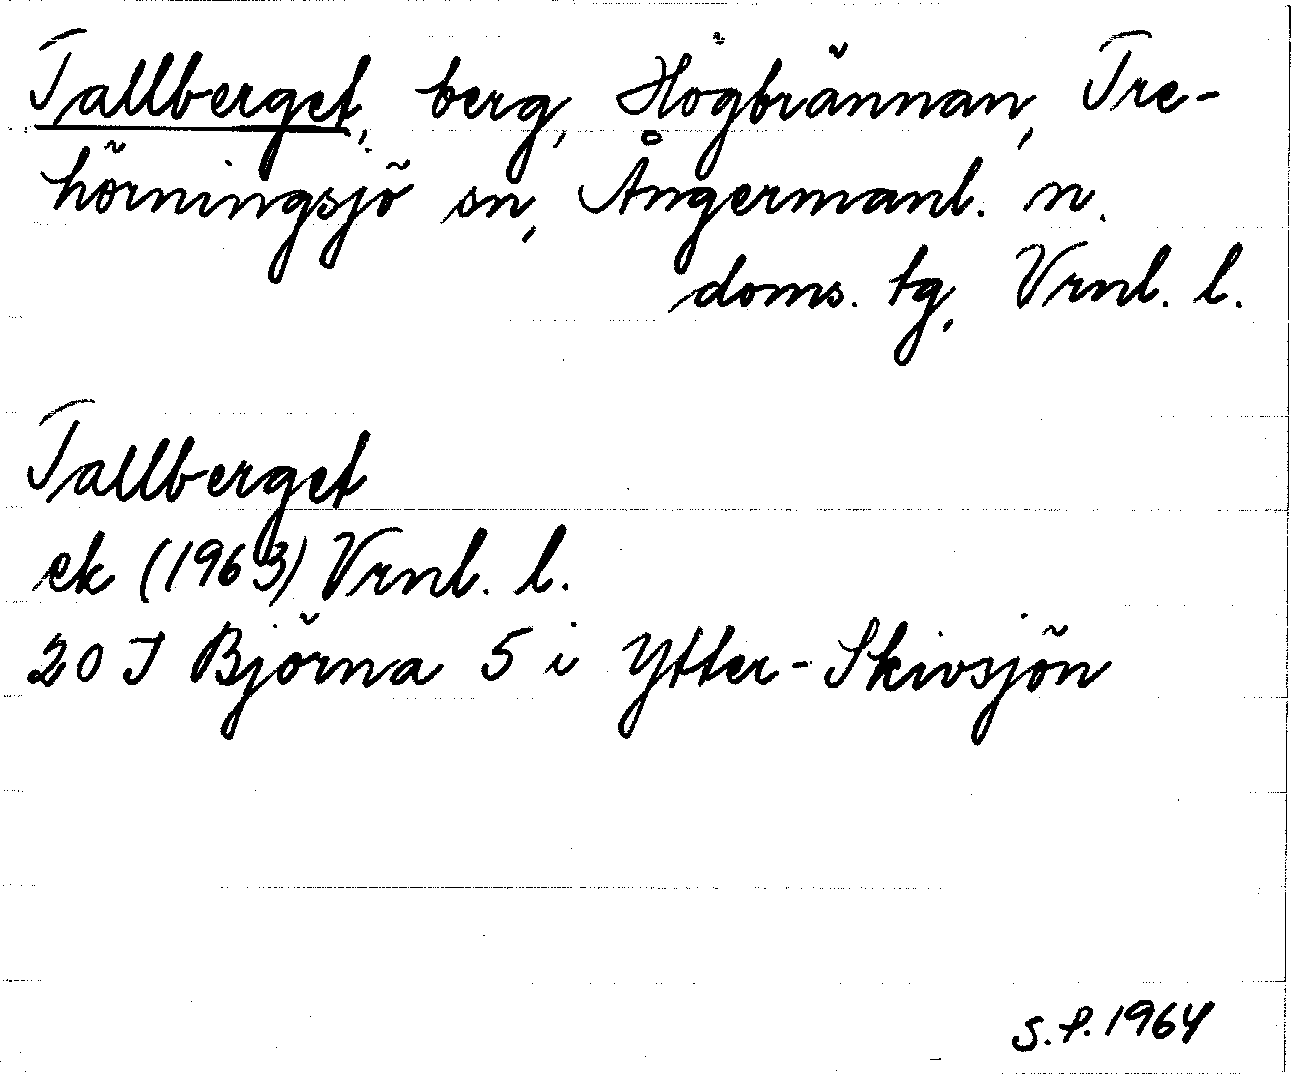 Tallberget, berg, Högbrännan, Tre-
hörningsjö sn, Ångermanl. n.
doms. tg, Vrnl. l.
Tallberget
ek (1963) Vrnl. l.
20 I Björna 5 i Ytter-Skivsjön
S.P. 1964